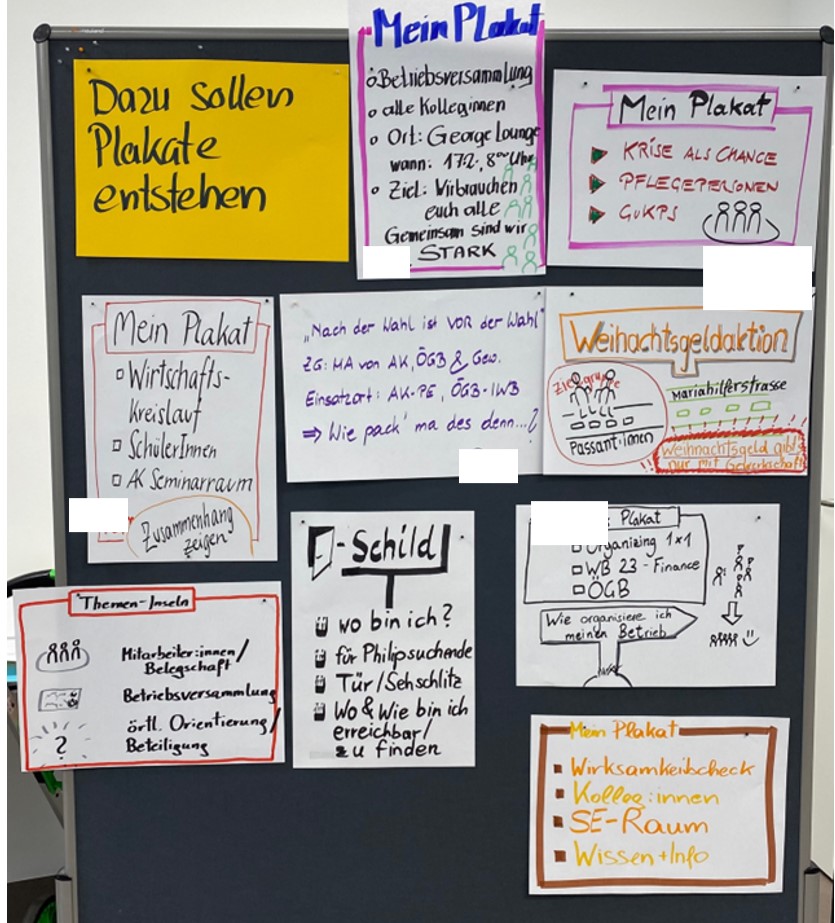 Dazu sollen
Plakate
entstehen
Mein Plakat
Betriebsversammlung
alle Kolleginnen
Ort: George Lounge
wann: 17.2., 8⁰⁰ Uhr
Ziel: Wir brauchen
euch alle
Gemeinsam sind wir
STARK
Mein Plakat
KRISE ALS CHANCE
PFLEGEPERSONEN
GuKPS
Mein Plakat
Wirtschafts-
kreislauf
SchülerInnen
AK Seminarraum
Zusammenhang
zeigen
„Nach der Wahl ist VOR der Wahl"
ZG: MA von AK, ÖGB & Gew.
Einsatzort: AK-PE, ÖGB-IWB
⇒ Wie pack' ma des denn...?
Weihnachtsgeldaktion
Zielgruppe
Passant:innen
Mariahilferstrasse
Weihnachtsgeld gibt's
nur mit Gewerkschaft
!!
Themen-Inseln
Mitarbeiter:innen/
Belegschaft
Betriebsversammlung
?
örtl. Orientierung/
Beteiligung
-Schild
wo bin ich?
für Philipsuchende
Tür/Sehschlitz
Wo & Wie bin ich
erreichbar/
zu finden
Plakat
Organizing 1x1
WB 23 - Finance
ÖGB
Wie organisiere ich
meinen Betrieb
Mein Plakat
Wirksamkeitscheck
Kolleg:innen
SE-Raum
Wissen+Info